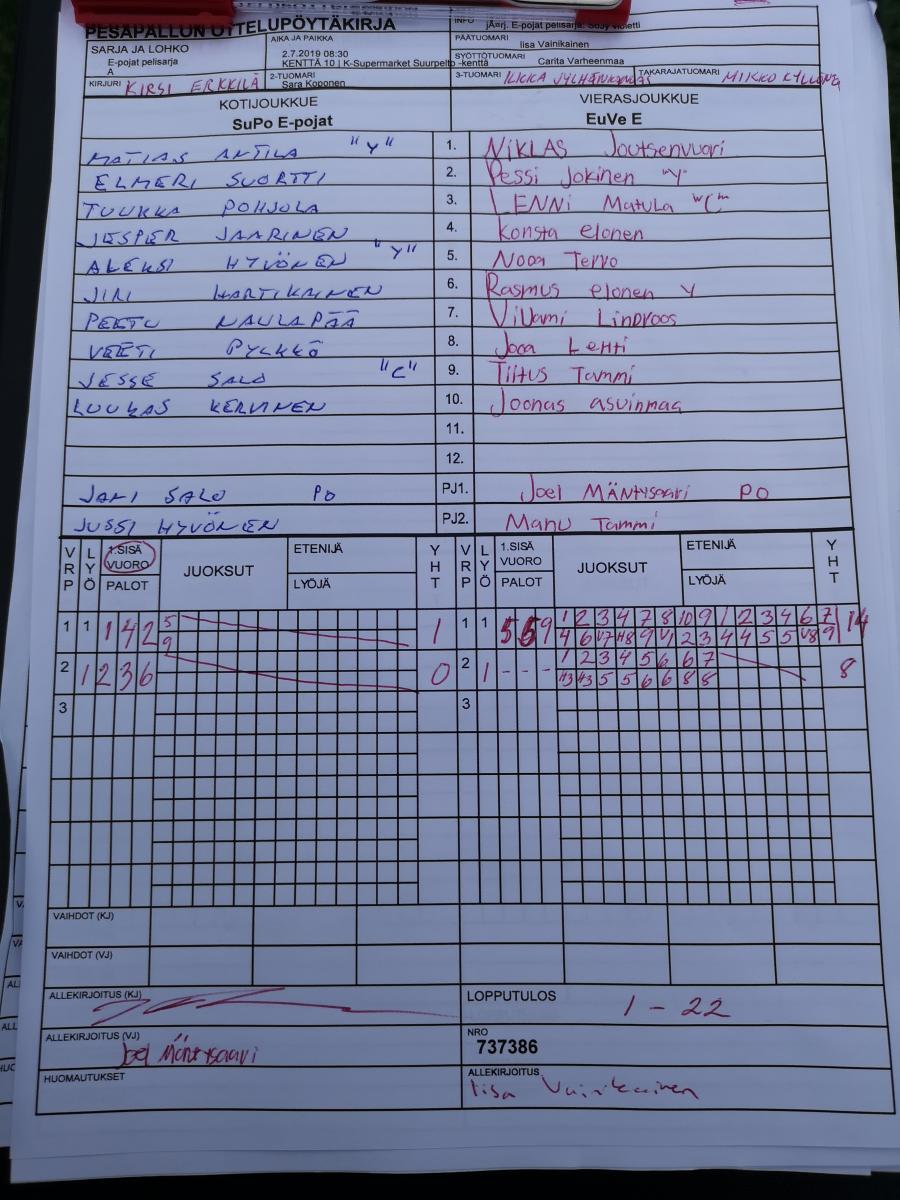 PESÄPALLON OTTELUPÖYTÄKIRJA
INFO
E-pojat pelisarja:
SARJA JA LOHKO
E-pojat pelisarja
A
AIKA JA PAIKKA
2.7.2019 08:30
KENTTÄ 10 | K-Supermarket Suurpelto -kenttä
PÄÄTUOMARI
Iisa Vainikainen
SYÖTTÖTUOMARI
Carita Varheenmaa
KIRJURI KIRSI ERKKILÄ
2-TUOMARI
Sara Koponen
3-TUOMARI
TAKARAJATUOMARI
KOTIJOUKKUE
SuPo E-pojat
VIERASJOUKKUE
EuVe E
MATIAS ANTILA "Y" 1. NiKLAS Joutsenvuori
ELMERI SUORTTI 2. Pessi Jokinen "Y"
TUUKKA POHJOLA 3. LENNi Matula "C"
JESPER JAARINEN 4. Konsta elonen
ALEKSI HYVÖNEN "Y" 5. Nooa Tervo
JIRI HARTIKAINEN 6. Rasmus elonen Y
PEETU NAULAPÄÄ 7. Viljami LiNDroos
VEETI PYLKKÖ 8. Jooa LeHti
JESSE SALO "C" 9. Tiitus Tammi
LUUKAS KERVINEN 10. Joonas asuinmaa
11.
12.
JANI SALO PO PJ1. Joel MäNtysaari PO
JUSSI HYVÖNEN PJ2. Manu Tammi
VRP LYÖ 1.SISÄ VUORO PALOT JUOKSUT ETENIJÄ LYÖJÄ YHT VRP LYÖ 1.SISÄ VUORO PALOT JUOKSUT ETENIJÄ LYÖJÄ YHT
1 1 1 4 2 5 1 1 1 5 6 9 1 2 3 4 7 8 10 9 1 2 3 4 6 7 14
9 4 6 V7 H8 9 V1 2 3 4 4 5 5 V8 9
2 1 2 3 6 0 2 1 - - - 1 2 3 4 5 6 6 7 8
H3 H3 5 5 6 6 8 8
3 3
VAIHDOT (KJ)
VAIHDOT (VJ)
ALLEKIRJOITUS (KJ)
LOPPUTULOS 1 - 22
ALLEKIRJOITUS (VJ) Joel Mäntysaari
NRO
737386
HUOMAUTUKSET
ALLEKIRJOITUS
Iisa Vainikainen